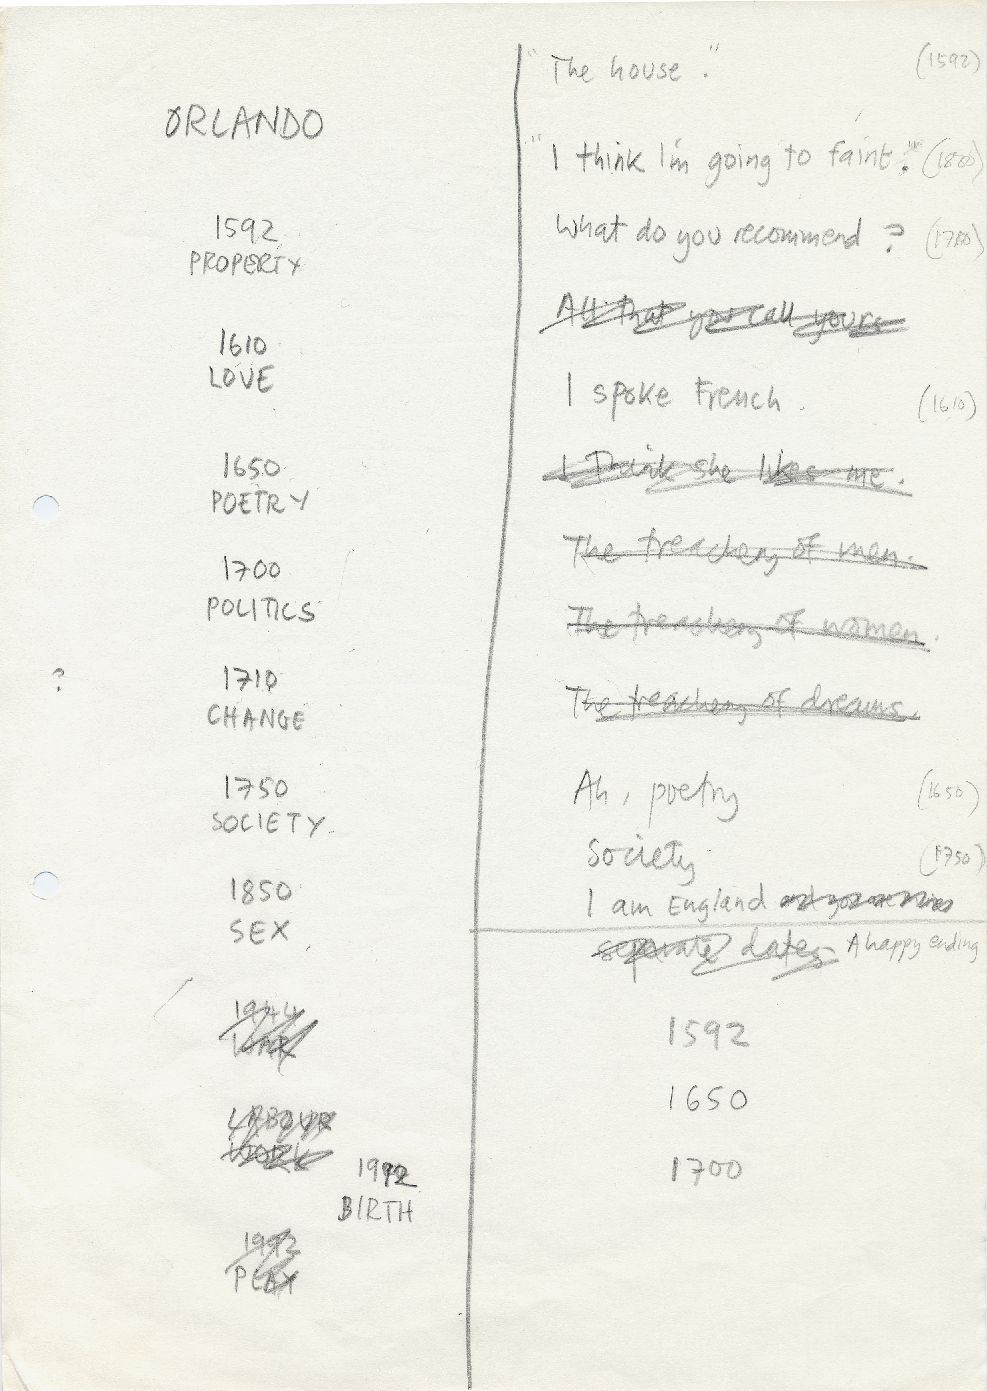 ORLANDO
1592
PROPERTY
1610
LOVE
1650
POETRY
1700
POLITICS
?
1710
CHANGE
1750
SOCIETY
1850
SEX
1944
LABOUR
1992
BIRTH
1992
PLAY
"The house." (1592)
"I think I'm going to faint." (1850)
What do you recommend ? (1700)
All that you call yours
I spoke French. (1610)
I think she likes me.
The treachery of men.
The treachery of women.
The treachery of dreams.
Ah, poetry (1650)
Society (1750)
I am England
separate dates A happy ending
1592
1650
1700